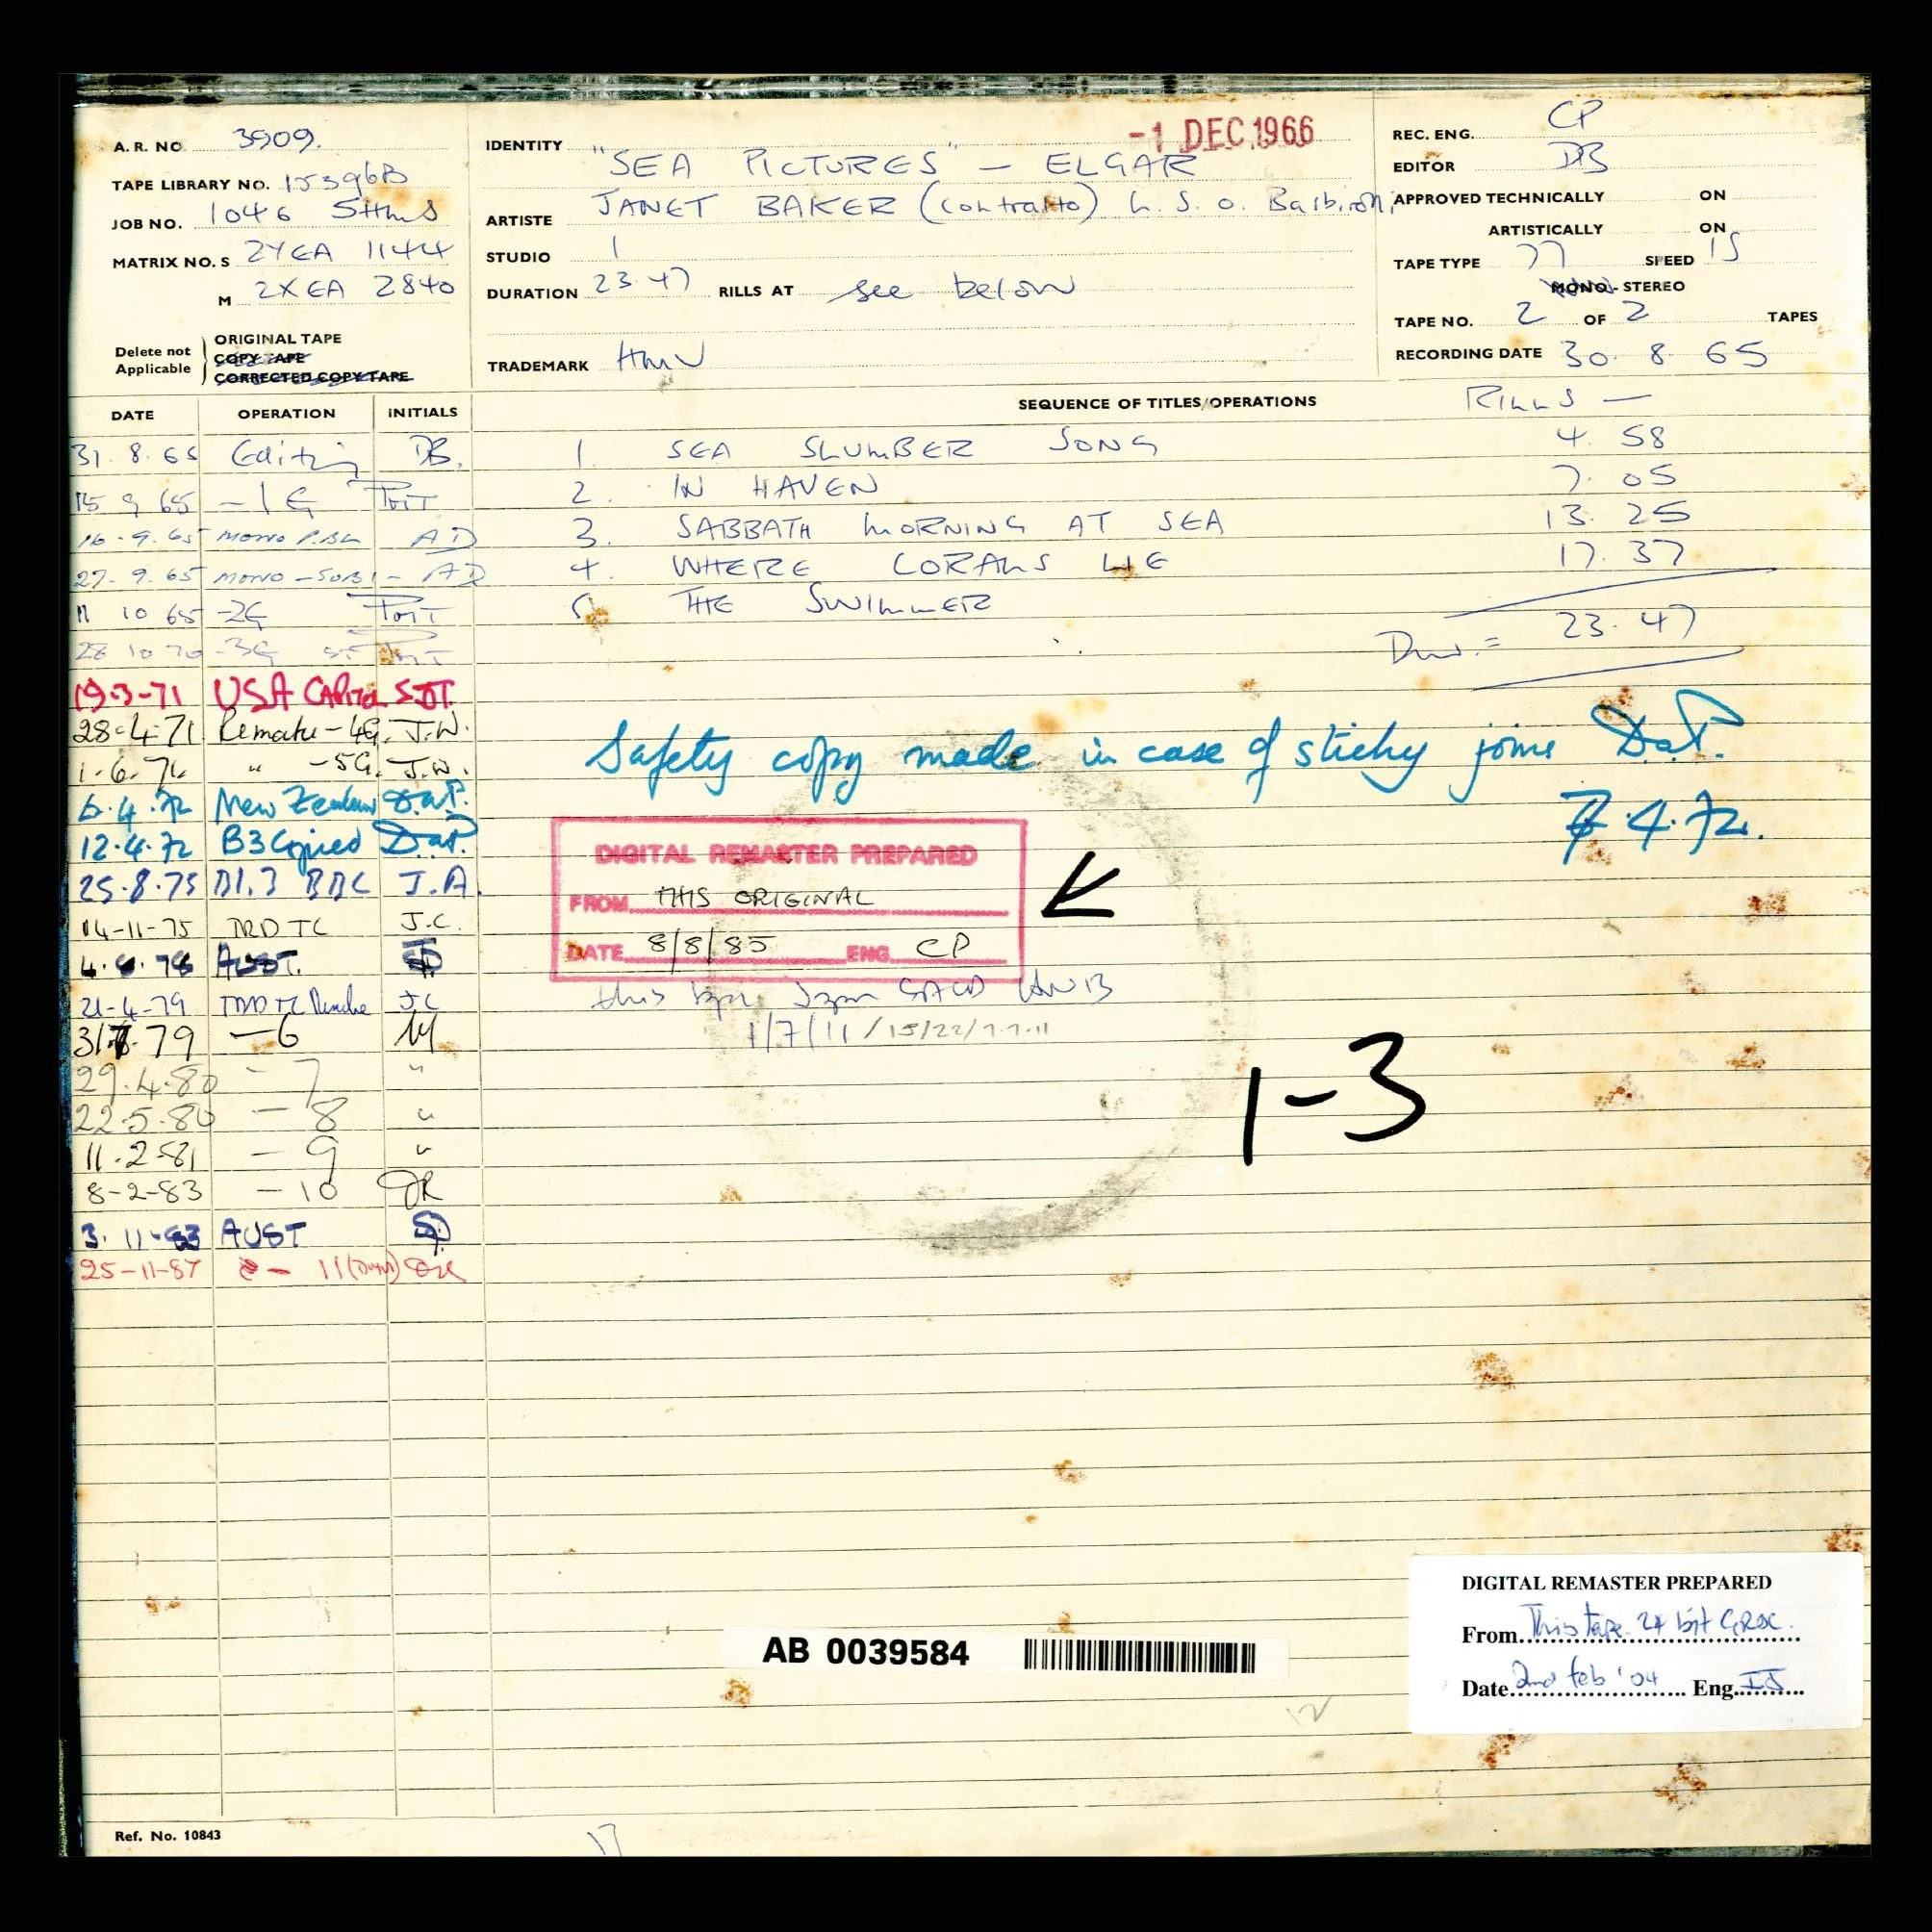 A. R. NO. 3909.
TAPE LIBRARY NO. 15396B
JOB NO. 1046
MATRIX NO. S 2YEA 1144
M 2XEA 2840
Delete not Applicable
ORIGINAL TAPE
COPY TAPE
CORRECTED COPY TAPE
-1 DEC 1966
IDENTITY "SEA PICTURES" — ELGAR
ARTISTE JANET BAKER (contralto) L.S.O. Barbirolli
STUDIO 1
DURATION 23.47 RILLS AT see below
TRADEMARK HMV
REC. ENG. CP
EDITOR DB
APPROVED TECHNICALLY ON
ARTISTICALLY ON
TAPE TYPE 77 SPEED 15
MONO - STEREO
TAPE NO. 2 OF 2 TAPES
RECORDING DATE 30. 8. 65
DATE OPERATION INITIALS
31. 8. 65 Editing DB.
15 9 65 -1G
16.9.65 MONO AD
27.9.65 MONO AD
11 10 65 -2G
28 10 70 -3G
19.3-71 USA Capitol
28-4-71 Remake -4G. J.W.
1.6.71 " -5G. J.W.
6.4.72 New Zealand D.a.T.
12.4.72 B3 Copied D.a.T.
25.8.75 BBC J.A.
14-11-75 TC J.C.
AUST.
21-4-79 TC J.C
79 -6
29.4.80 -7 "
22.5.80 -8 "
11.2.81 -9 "
8-2-83 -10 JR
3.11.83 AUST SD
25-11-87 - 11
SEQUENCE OF TITLES/OPERATIONS RILLS —
1 SEA SLUMBER SONG 4. 58
2. IN HAVEN 7. 05
3. SABBATH MORNING AT SEA 13. 25
4. WHERE CORALS LIE 17. 37
5. THE SWIMMER
Dur. = 23. 47
Safety copy made in case of sticky joins D.a.T.
7.4.72.
DIGITAL REMASTER PREPARED
FROM THIS ORIGINAL
DATE 8/8/85 ENG CP
this SACD
1/7/11
1-3
DIGITAL REMASTER PREPARED
From This tape 24 bit
Date 2nd Feb '04 Eng. IJ
AB 0039584
12
Ref. No. 10843
17